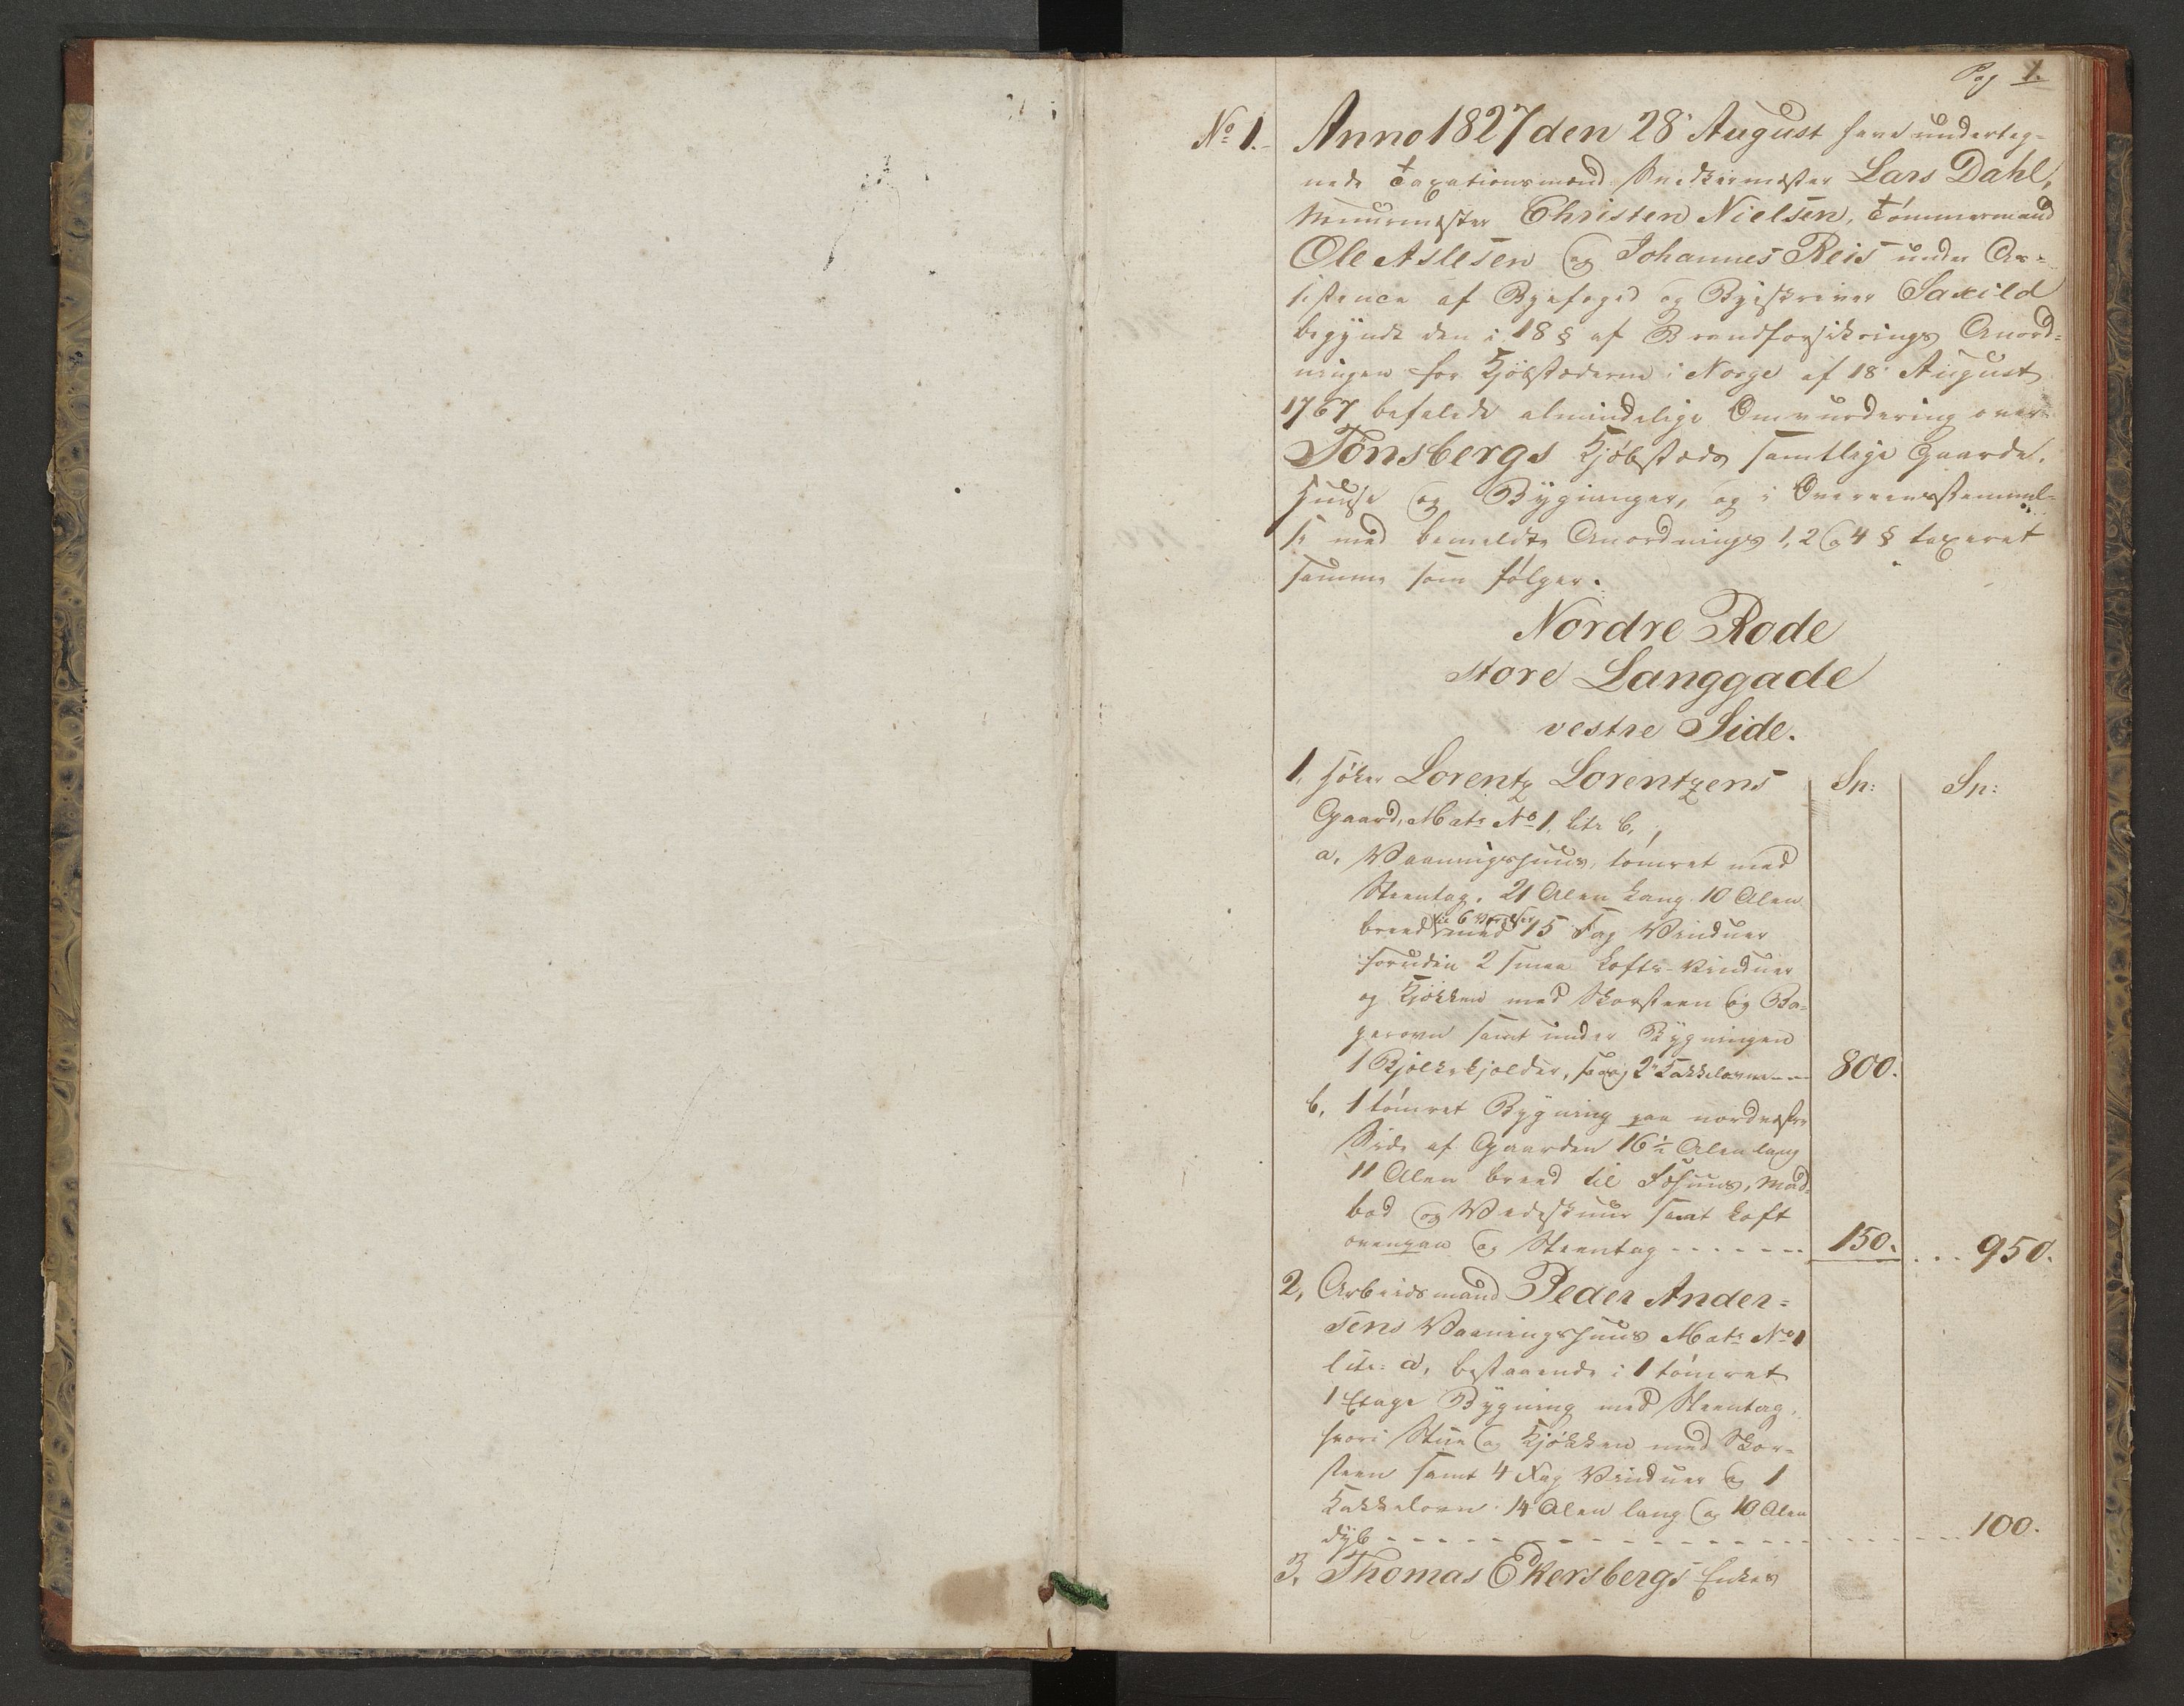 Pag 1.
No 1.
Anno 1827 den 28 August have underteg-
nede Taxationsmænd Snedkermester Lars Dahl,
Muurmester Christen Nielsen, Tömmermand
Ole Aslesen og Johannes Reis under As-
sistence af Byefoged og Byeskriver Saxild
begyndt den i 18 § af Brandforsikrings Anord-
ningen for Kjöbstæderne i Norge af 18 August
1767 befalede almindelige Omvurdering over
Tönsbergs Kjöbstæds samtlige Gaarde,
Huuse og Bygninger, og i Overeensstemmel-
se med bemeldte Anordnings 1, 2 og 4 § taxeret
samme som fölger.
Nordre Rode
store Langgade
vestre Side.
1, Lorentz Lorentzens
Sp:
Sp:
Gaard, Matr No 1, litr b,
a, Vaaningshuus, tömret med
Steentag, 21 Alen lang 10 Alen
breed til 6 Værelser med 15 Fag Vinduer
foruden 2 smaa Lofts-Vinduer
og Kjökken med Skorsteen og Ba-
gerovn samt under Bygningen
1 Bjelkekjelder, 2 Kakkelovne 800.
b, 1 tömret Bygning paa nordvestre
Side af Gaarden 16½ Alen lang
11 Alen breed til Fæhuus, Mad-
bod og Vedeskuur samt Loft
ovenpaa og Steentag 150. 950.
2, Arbeidsmand Peder Ander-
sens Vaaningshuus Matr No 1
litr: a, bestaaende i 1 tömret
1 Etage Bygning med Steentag,
hvori Stue og Kjökken med Skor-
steen samt 4 Fag Vinduer og 1
Kakkelovn 14 Alen lang og 10 Alen
dyb 100.
3, Thomas Ekersbergs Enkes